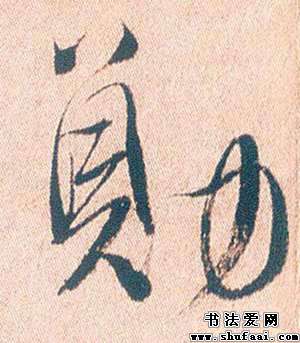 勛
书法爱网
www.shufaai.com